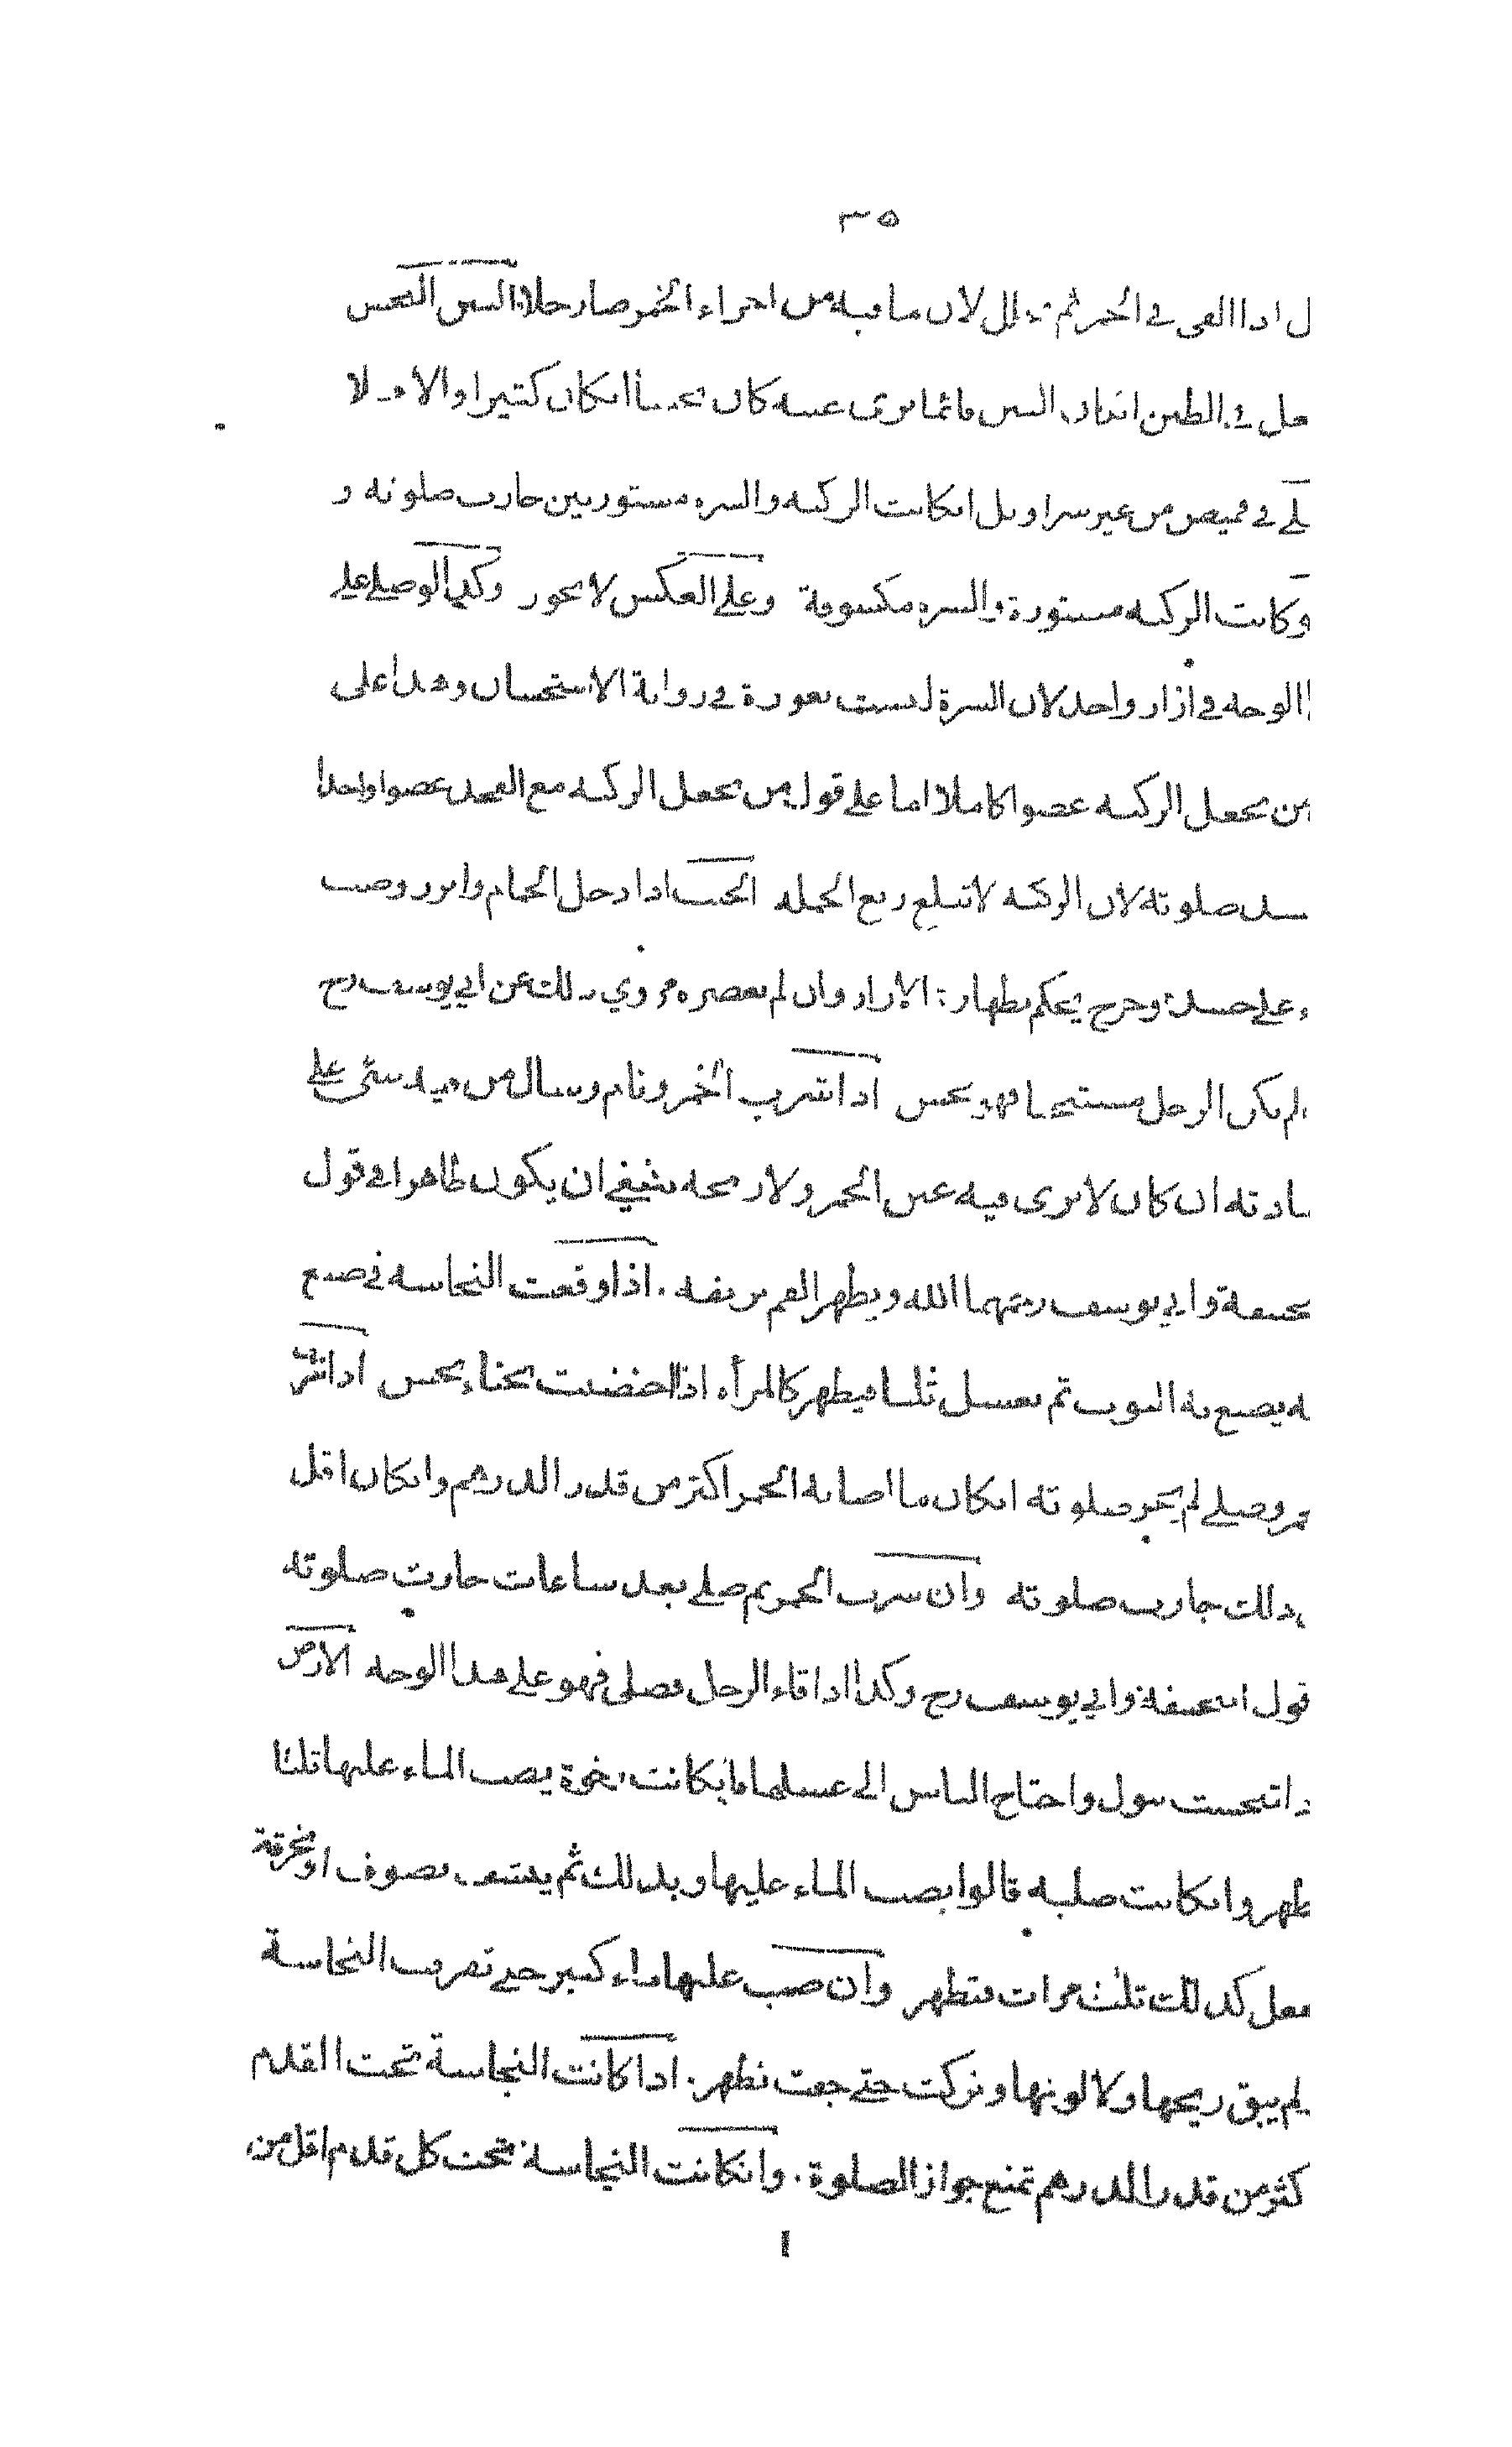 ٣٥
ل اذا القى فى الخمر ثم تخلل لان ما فيه من اجزاء الخمر صار حلالا التبن النجس
جعل فى الطين التبن فانما يرى عينه كان نجسا انكان كثيرا والا فلا
صلى فى قميص من غير سراويل انكانت الركبه والسره مستورتين جازت صلوته و
وكانت الركبه مستورة والسره مكشوفة وعلى العكس لا يجوز وكذا لو صلى على
هذا الوجه فى ازار واحد لان السرة ليست بعورة فى رواية الاستحسان وهذا على
من يجعل الركبه عضوا كاملا اما على قول من يجعل الركبه مع الفخذ عضوا واحدا
تفسد صلوته لان الركبه لا تبلغ ربع الجمله الجنب اذا دخل الحمام واتزر وصب
ء على جسده وخرج يحكم بطهارة الازار وان لم يعصره مروي ذلك عن ابي يوسف رح
لم يكن الرجل مستنجيا فهو نجس اذا شرب الخمر ونام وسال من فيه شئ على
سادته ان كان لا يرى فيه عين الخمر ولا ريحه ينبغي ان يكون طاهرا فى قول
حنيفة وابي يوسف رحمهما الله ويطهر الفم بريقه . اذا وقعت النجاسه فى صبغ
نه يصبغ به الثوب ثم يغسل ثلثا فيطهر كالمرأه اذا اختضبت بحناء نجس اذا شرب
خمر وصلى لم يجز صلوته انكان ما اصابه الخمر اكثر من قدر الدرهم وانكان اقل
ذلك جازت صلوته وان شرب الخمر ثم صلى بعد ساعات جازت صلوته
قول ابيحنيفة وابي يوسف رح وكذا اذا قاء الرجل فصلى فهو على هذا الوجه الارض
ذا تنجست ببول واحتاج الناس الى غسلها فانكانت رخوة يصب الماء عليها ثلثا
تطهر وانكانت صلبه قالوا يصب الماء عليها ويدلك ثم ينشف بصوف او بخرقة
يفعل كذلك ثلث مرات فتطهر وان صب عليها ماء كثير حتى تفرقت النجاسة
لم يبق ريحها ولا لونها وتركت حتى جفت تطهر . اذا كانت النجاسة تحت القدم
كثر من قدر الدرهم تمنع جواز الصلوة . وانكانت النجاسة تحت كل قدم اقل من